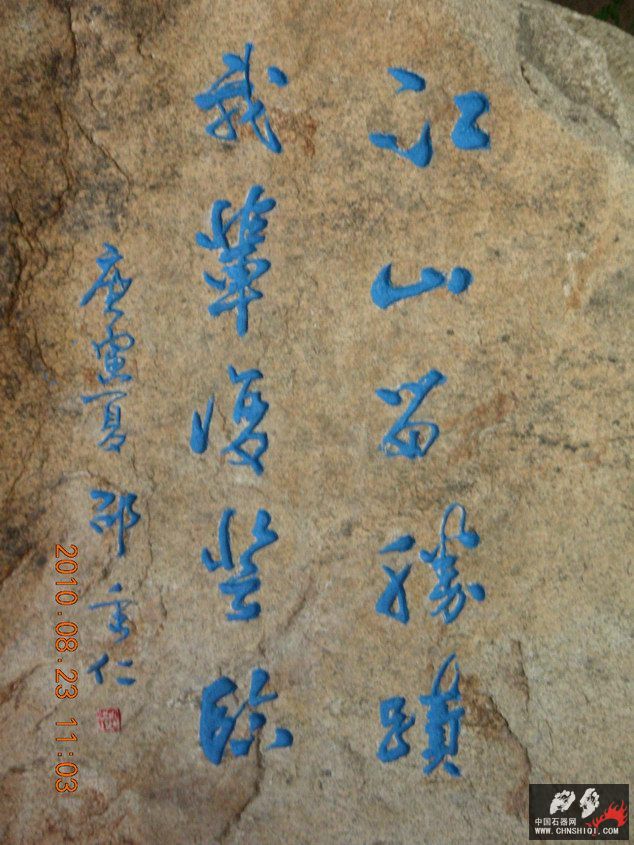 江山留勝蹟
我輩復登臨
庚寅夏 邵秉仁
2010.08.23 11:03
中国石器网
WWW.CHNSHIQI.COM